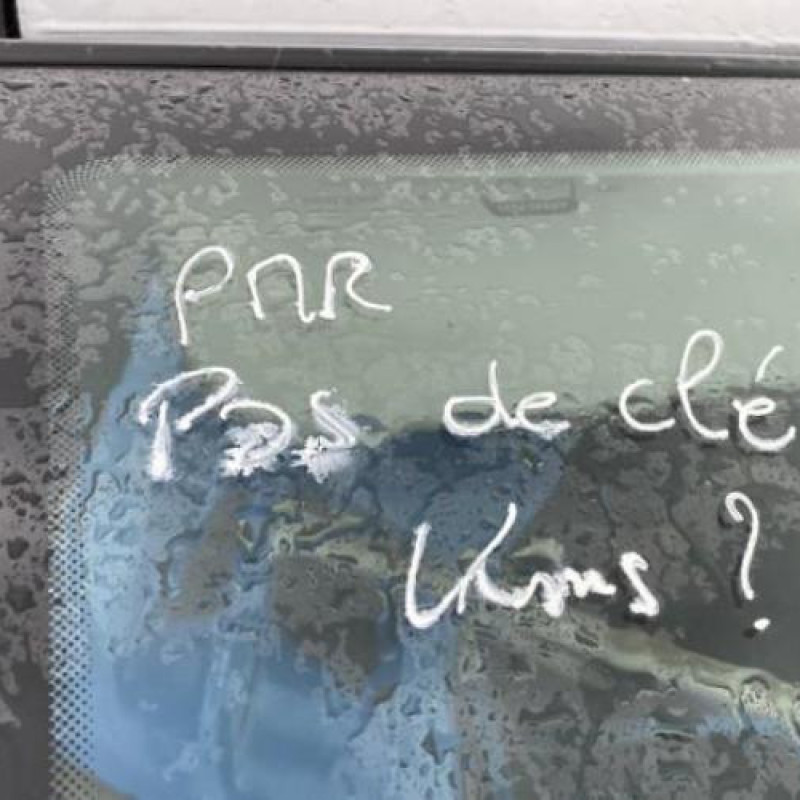 PMR
Pas de clé
Kms ?